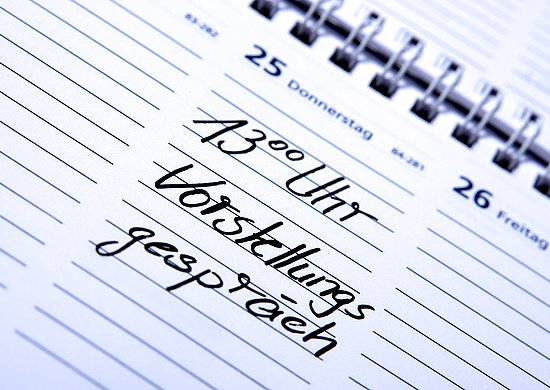 83-282
25 Donnerstag
84-281
13⁰⁰ Uhr
Vorstellungs
gespräch
26 Freitag